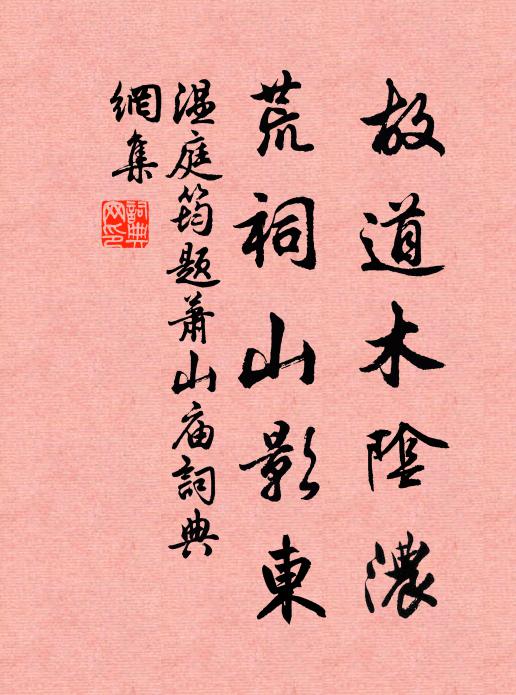 故道木陰濃
荒祠山影東
温庭筠題蕭山庙詞典
網集
詞典
网印